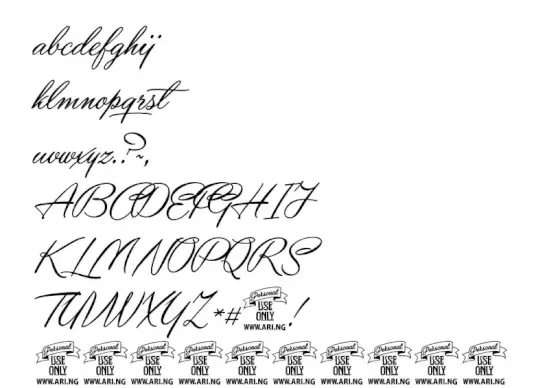 abcdefghij
klmnopqrst
uvwxyz.:?~,
ABCDEFGHIJ
KLMNOPQRS
TUVWXYZ*#Personal USE ONLY WWW.ARI.NG!
Personal Personal Personal Personal Personal Personal Personal Personal Personal Personal
USE USE USE USE USE USE USE USE USE USE
ONLY ONLY ONLY ONLY ONLY ONLY ONLY ONLY ONLY ONLY
WWW.ARI.NG WWW.ARI.NG WWW.ARI.NG WWW.ARI.NG WWW.ARI.NG WWW.ARI.NG WWW.ARI.NG WWW.ARI.NG WWW.ARI.NG WWW.ARI.NG